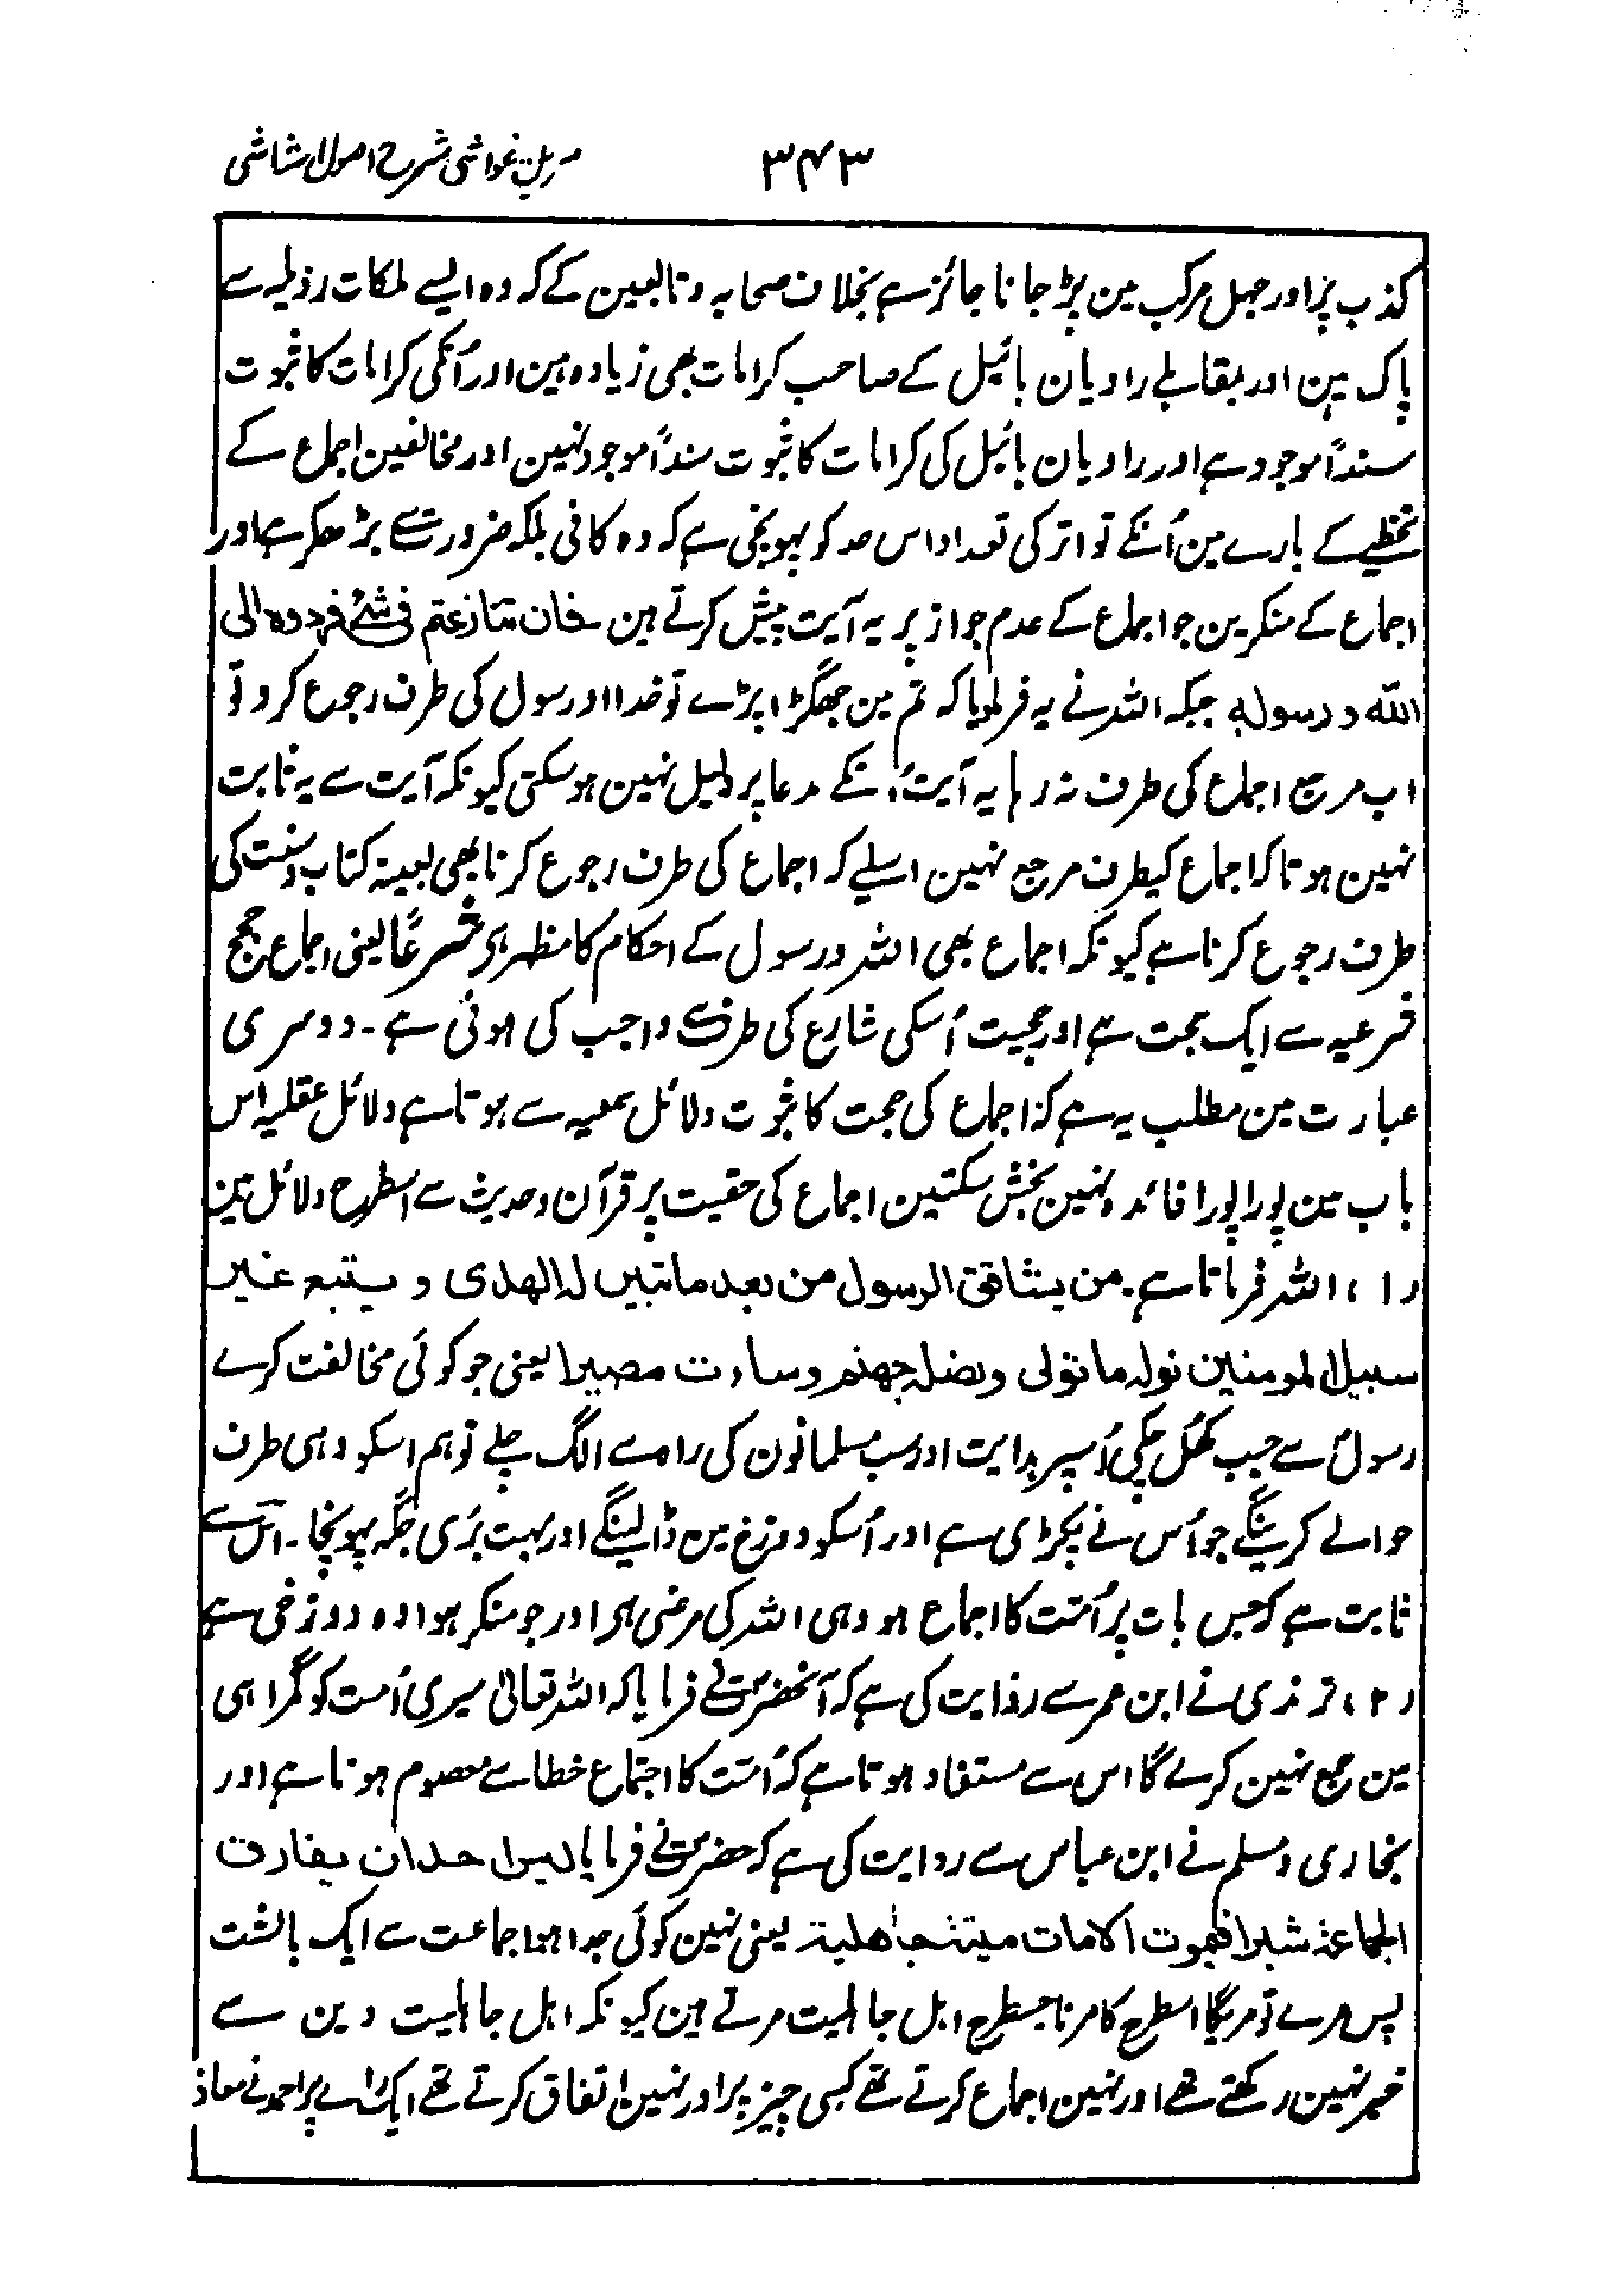 ۳۴۳ مزیل غواشی شرح اصول الشاشی
کذب پر اور جہل مرکب مین پڑ جانا جائز ہے بخلاف صحابہ و تابعین کے کہ وہ ایسے ملکات رذیلہ سے
پاک ہین اور بمقابلے راویان بائیبل کے صاحب کرامات بھی زیادہ ہین اور اُنکی کرامات کا ثبوت
سنداً موجود ہے اور راویان بائبل کی کرامات کا ثبوت سنداً موجود نہین اور مخالفین اجماع کے
تخطیے کے بارے مین اُنکے تواتر کی تعداد اس حد کو پہونچی ہے کہ وہ کافی بلکہ ضرورت سے بڑھکر ہے اور
اجماع کے منکرین جو اجماع کے عدم جواز پر یہ آیت پیش کرتے ہین۔ فان تنازعتم فی شئ فردوہ الی
اللہ و رسولہ جبکہ اللہ نے یہ فرمایا کہ تم مین جھگڑا پڑے تو خدا اور رسول کی طرف رجوع کرو تو
اب مرجع اجماع کی طرف نہ رہا یہ آیت اُنکے مدعا پر دلیل نہین ہوسکتی کیونکہ آیت سے یہ ثابت
نہین ہوتا کہ اجماع کیطرف مرجع نہین اسلیے کہ اجماع کی طرف رجوع کرنا بھی بعینہ کتاب و سنت کی
طرف رجوع کرنا ہے کیونکہ اجماع بھی اللہ و رسول کے احکام کا مظہر ہی شرعًا یعنی اجماع حجج
شرعیہ سے ایک حجت ہے اور حجیت اُسکی شارع کی طرف سے واجب کی ہوئی ہے۔ دوسری
عبارت مین مطلب یہ ہے کہ اجماع کی حجت کا ثبوت دلائل سمعیہ سے ہوتا ہے دلائل عقلیہ اس
باب مین پورا پورا فائدہ نہین بخش سکتین اجماع کی حقیت پر قرآن و حدیث سے اسطرح دلائل ہین
(۱) اللہ فرماتا ہے۔ من یشاقق الرسول من بعد ما تبین لہ الھدی و یتبع غیر
سبیل المومنین نولہ ما تولی و نصلہ جھنم وساءت مصیرا یعنی جو کوئی مخالفت کرے
رسول سے جب کھل چکی اُسپر ہدایت اور سب مسلمانون کی راہ سے الگ چلے تو ہم اسکو وہی طرف
حوالے کرینگے جو اُس نے پکڑی ہے اور اُسکو دوزخ مین ڈالینگے اور بہت بُری جگہ پہونچا۔ اس سے
ثابت ہے کہ جس بات پر اُمّت کا اجماع ہو وہی اللہ کی مرضی ہی اور جو منکر ہوا وہ دوزخی ہے
(۲) ترمذی نے ابن عمر سے روایت کی ہے کہ آنحضرتؐ نے فرمایا کہ اللہ تعالیٰ میری اُمت کو گمراہی
مین جمع نہین کرے گا اس سے مستفاد ہوتا ہے کہ اُمّت کا اجتماع خطا سے معصوم ہوتا ہے اور
بخاری و مسلم نے ابن عباس سے روایت کی ہے کہ حضرتؐ نے فرمایا لیس احدان یفارق
الجماعۃ شبرا فیموت الا مات میتۃ جاھلیۃ یعنی نہین کوئی جدا ہوا جماعت سے ایک بالشت
پس مرے تو مریگا اسطرح کا مرنا جسطرح اہل جاہلیت مرتے ہین کیونکہ اہل جاہلیت دین سے
خبر نہین رکھتے تھے اور نہین اجماع کرتے تھے کسی چیز پر اور نہین اتفاق کرتے تھے ایک راے پر احمد نے معاذ